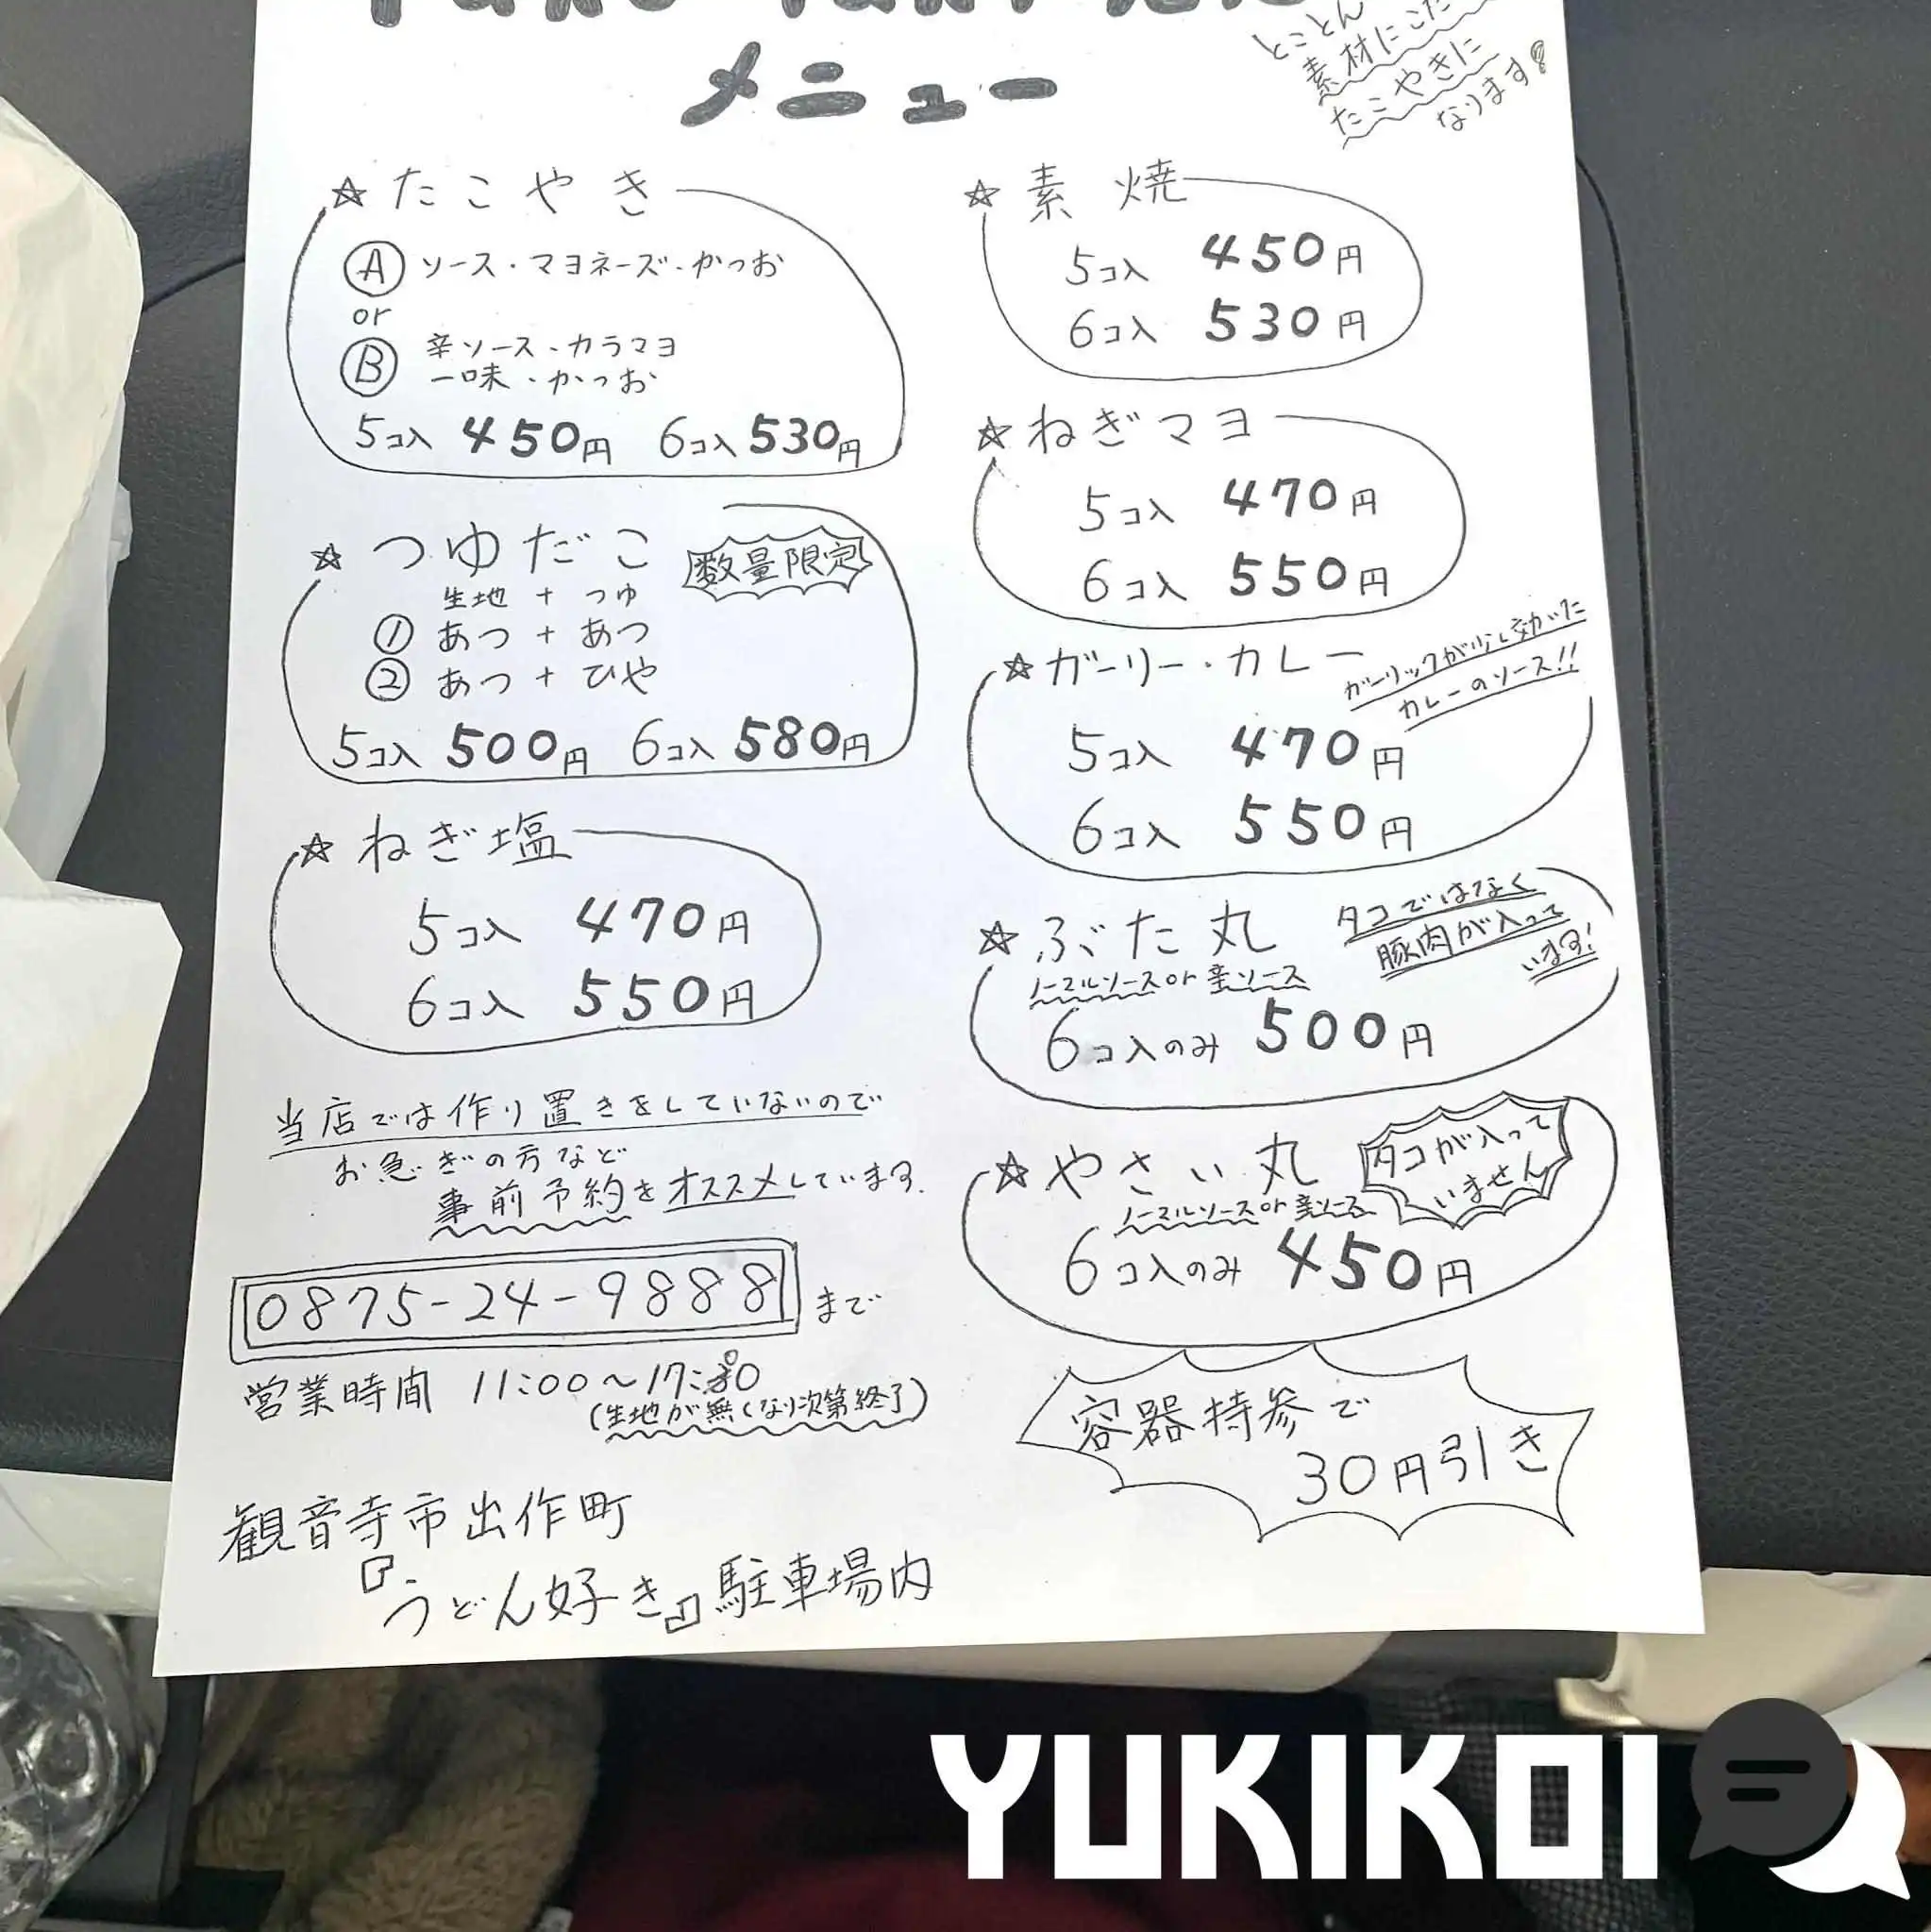 メニュー
とことん
素材にこだ
たこやきに
なります!
☆たこやき
Ⓐ ソース・マヨネーズ・かつお
or
Ⓑ 辛ソース・カラマヨ
一味・かつお
5コ入 450円 6コ入 530円
☆つゆだこ
数量限定
生地 + つゆ
① あつ + あつ
② あつ + ひや
5コ入 500円 6コ入 580円
☆ねぎ塩
5コ入 470円
6コ入 550円
当店では作り置きをしていないので
お急ぎの方など
事前予約をオススメしています.
0875-24-9888 まで
営業時間 11:00〜17:00
(生地が無くなり次第終了)
観音寺市出作町
『うどん好き』駐車場内
☆素焼
5コ入 450円
6コ入 530円
☆ねぎマヨ
5コ入 470円
6コ入 550円
☆ガーリー・カレー
ガーリックが少し効いた
カレーのソース!!
5コ入 470円
6コ入 550円
☆ぶた丸
タコではなく
豚肉が入って
います!
ノーマルソース or 辛ソース
6コ入のみ 500円
☆やさい丸
タコが入って
いません
ノーマルソース or 辛ソース
6コ入のみ 450円
容器持参で
30円引き
YUKIKOI